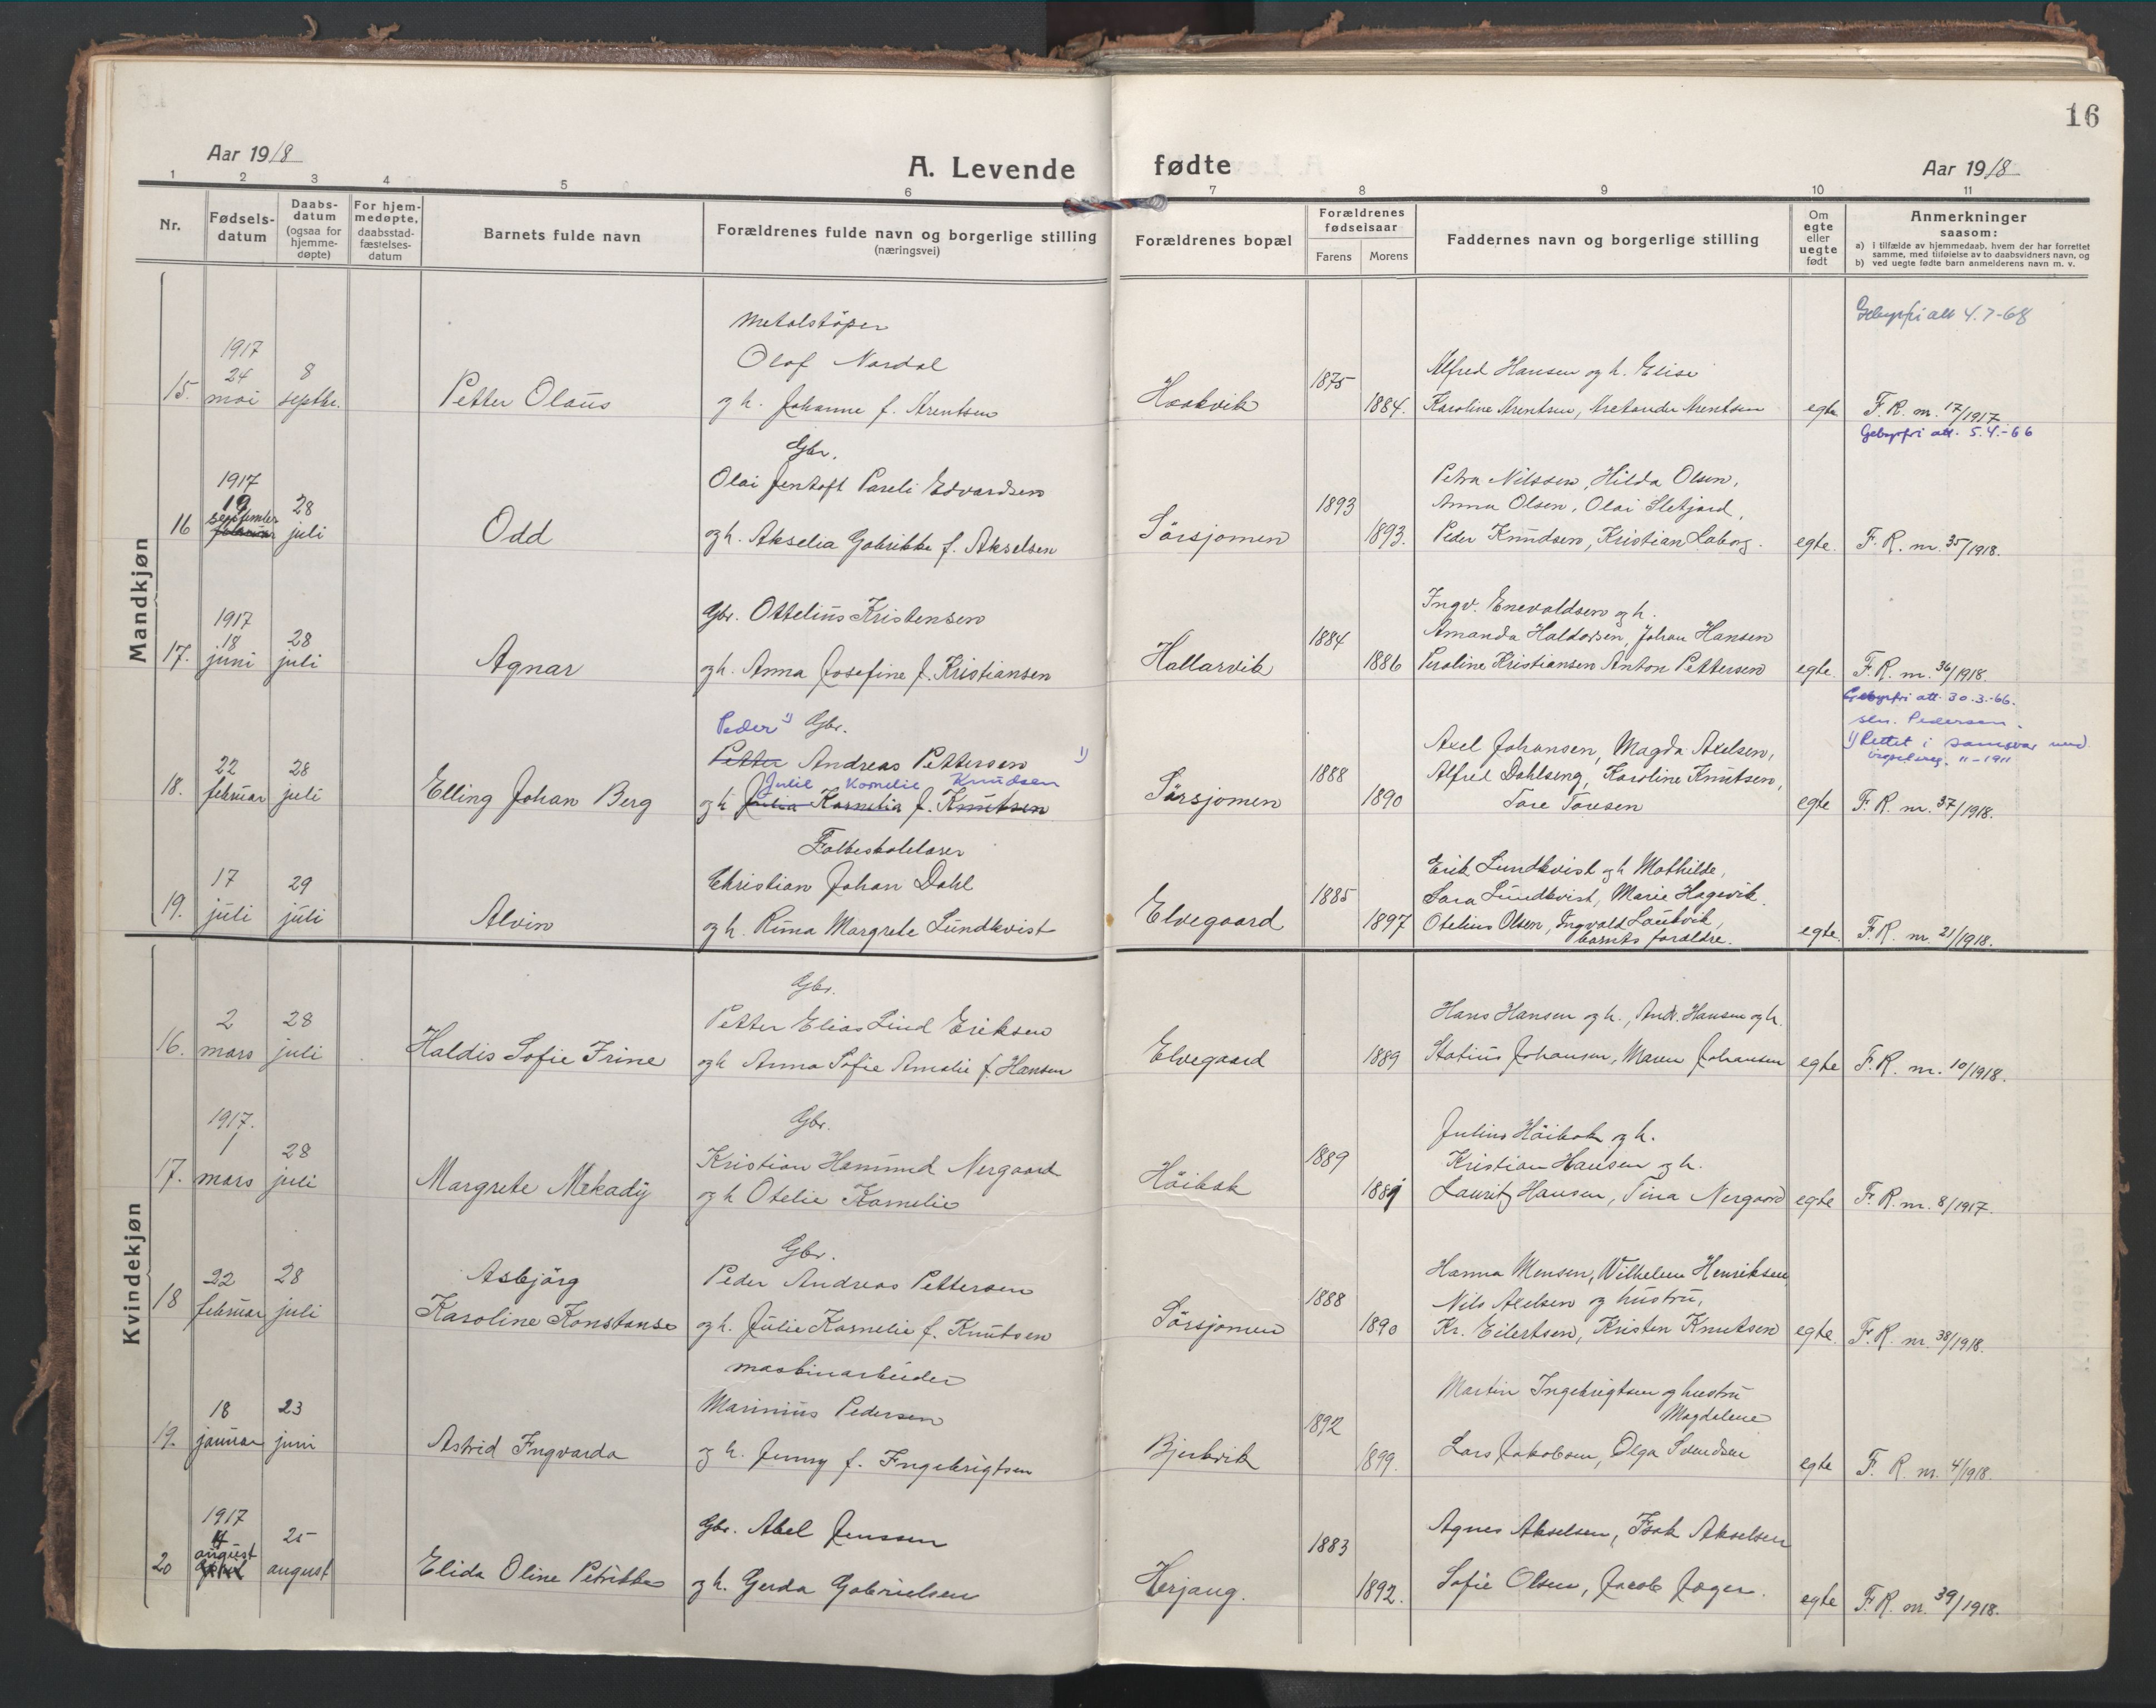 16
Aar 1918
A. Levende fødte
Aar 1918
1 2 3 4 5 6 7 8 9 10 11
Nr.
Fødsels-
datum
Daabs-
datum
(ogsaa for
hjemme-
døpte)
For hjem-
medøpte,
daabsstad-
fæstelses-
datum
Barnets fulde navn
Forældrenes fulde navn og borgerlige stilling
(næringsvei)
Forældrenes bopæl
Forældrenes
fødselsaar
Farens Morens
Faddernes navn og borgerlige stilling
Om
egte
eller
uegte
født
Anmerkninger
saasom:
a) i tilfælde av hjemmedaab, hvem der har forrettet
samme, med tilføielse av to daabsvidners navn, og
b) ved uegte fødte barn anmelderens navn m. v.
Mandkjøn
15.
1917
24
mai
8
septbr.
Petter Olaus
Metalstöper
Olaf Nordal
og h. Johanne f. Arentsen
Haakvik
1875
1884.
Alfred Hansen og h. Elise
Karoline Arentsen, Aretander Arentsen
egte
Gebyrfri att 4.7-68
F. R. nr. 17/1917
Gebyrfri att. 5.4.-66
16
1917
19
september
februar
28
juli
Odd
Gbr.
Olai Jentoft Pareli Edvardsen
og h. Akselia Gabrikke f. Akselsen
Sörsjomen
1893
1893.
Petra Nilssen, Hilda Olsen,
Anna Olsen, Olai Sletjord,
Peder Knudsen, Kristian Laberg.
egte.
F. R. nr. 35/1918.
17.
1917
18
juni
28
juli
Agnar
Gbr. Ottelius Kristensen
og h. Anna Josefine f. Kristiansen
Hallarvik
1884
1886
Ingv. Enevoldsen og h.
Amanda Haldorsen, Johan Hansen
Peroline Kristiansen Anton Pettersen
egte.
F. R. nr. 36/1918.
Gebyrfri att. 30.3.-66.
sln. Pedersen.
1) Rettet i samsvar med
11-1911
18.
22
februar
28
juli
Elling Johan Berg
Peder 1) Gbr.
Petter Andreas Pettersen 1)
Julie Kornelie Knudsen
og h. Julia Kornelia f. Knutsen
Sörsjomen
1888
1890
Axel Johansen, Magda Axelsen,
Alfred Dahlseng, Karoline Knutsen,
Tore Toresen
egte
F. R. nr. 37/1918.
19.
17
juli
29
juli
Alvin
Folkeskolelærer
Christian Johan Dahl
og h. Runa Margrete Lundkvist
Elvegaard
1885
1897
Erik Lundkvist og h Mathilde,
Sara Lundkvist, Marie Hagevik.
Otelius Olsen, Ingvald Laukvik,
barnets forældre.
egte.
F. R. nr. 21/1918.
Kvindekjøn
16.
2
mars
28
juli
Haldis Sofie Irine
Gbr.
Petter Elias Lind Eriksen
og h Anna Sofie Amalie f. Hansen
Elvegaard
1889
Hans Hansen og h., Andr. Hansen og h.
Statius Johansen, Maren Johansen
egte
F. R. nr. 10/1918.
17.
1917.
1
mars
28
juli
Margrete Mekady
Gbr.
Kristian Hamund Nergaard
og h Otelie Kornelie
Höibak
1889
1881
Julius Höibak og h.
Kristian Hansen og h.
Lauritz Hansen, Tina Nergaard
egte
F. R. nr. 8/1917.
18
22
februar
28
juli
Asbjörg
Karoline Konstanse
Gbr.
Peder Andreas Pettersen
og h. Julie Kornelie f. Knutsen
Sörsjomen
1888
1890
Hanna Monsen, Wilhelm Henriksen
Nils Axelsen og hustru,
Kr. Eilertsen, Kristen Knutsen
egte.
F. R. nr. 38/1918.
19.
18
januar
23
juni
Astrid Ingvarda
maskinarbeider
Marinius Pedersen
og h. Jenny f. Ingebrigtsen
Bjerkvik
1892
1899.
Martin Ingebrigtsen og hustru
Magdelene
Lars Jakobsen, Olga Svendsen
egte
F. R. nr. 4/1918.
20
1917
august
25
august
Elida Oline Petrikke
Gbr. Abel Jenssen
og h. Gerda Gabrielsen
Herjang.
1883
1892.
Agnes Akselsen, Isak Akselsen
Sofie Olsen, Jacob Jæger.
egte
F. R. nr. 39/1918.